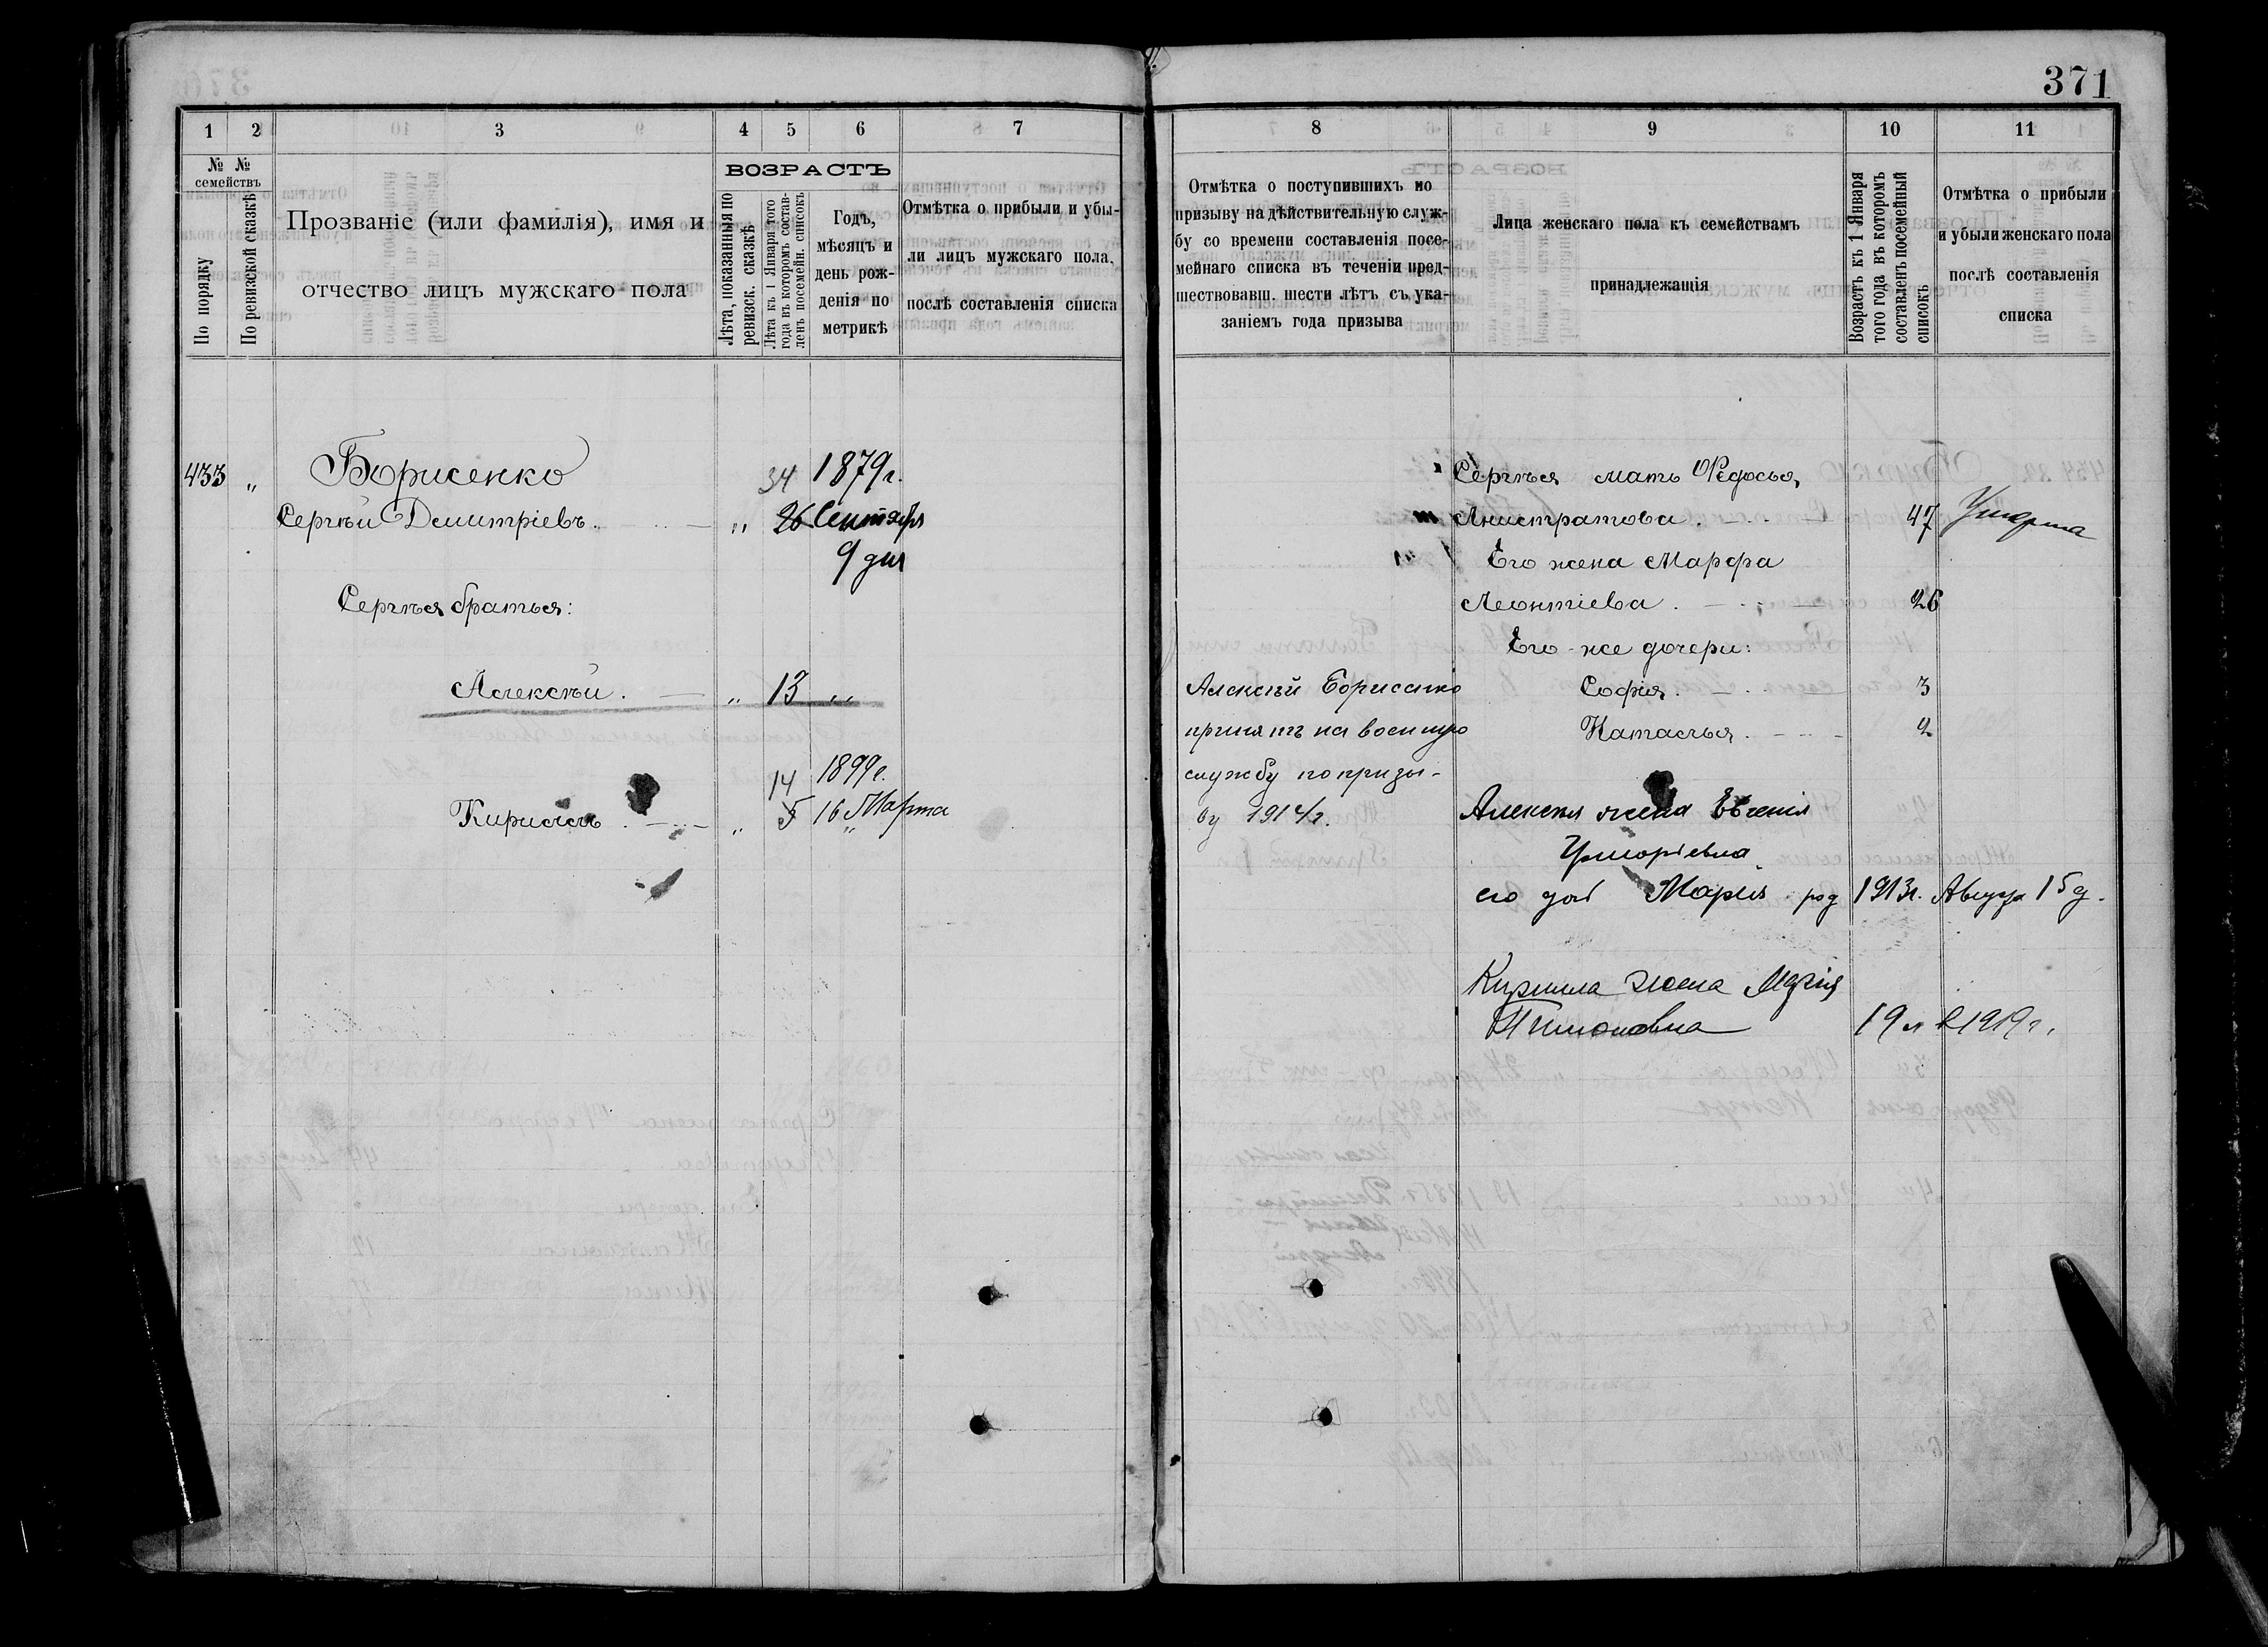 371
1 2 3 4 5 6 7
№ № семействъ
По порядку
По ревизской сказкѣ
Прозваніе (или фамилія), имя и
отчество лицъ мужскаго пола
ВОЗРАСТЪ
Лѣта, показанныя по
ревизск. сказкѣ
Лѣта къ 1 Января того
года въ которомъ состав-
ленъ посемейн. списокъ
Годъ,
мѣсяцъ и
день рож-
денія по
метрикѣ
Отмѣтка о прибыли и убы-
ли лицъ мужскаго пола,
послѣ составленія списка
433 „ Борисенко 34 1879г.
Сергѣй Демитріевъ. „ 26 Сентября
9 дня
Сергѣя братья:
Алексѣй. „ 13 „
14 1899г.
Кириллъ „ 5 16 Марта
8 9 10 11
Отмѣтка о поступившихъ по
призыву на дѣйствительную служ-
бу со времени составленія посе-
мейнаго списка въ теченіи пред-
шествовавш. шести лѣтъ съ ука-
заніемъ года призыва
Лица женскаго пола къ семействамъ
принадлежащія
Возрастъ къ 1 Января
того года въ которомъ
составленъ посемейный
списокъ
Отмѣтка о прибыли
и убыли женскаго пола
послѣ составленія
списка
Сергѣя мать Ѳедосья
Анистратова. 47 Умерла
Его жена Марфа
Леонтіева. 26
Его-же дочери:
Алексѣй Борисенко София. 3
принятъ на военную Наталья. 2
службу по призы-
ву 1914г. Алексѣя жена Евгенія
Григоріевна
его доч Марія род 1913г. Августа 15 д.
Кирилла жена Марія
19 л в 1919г.